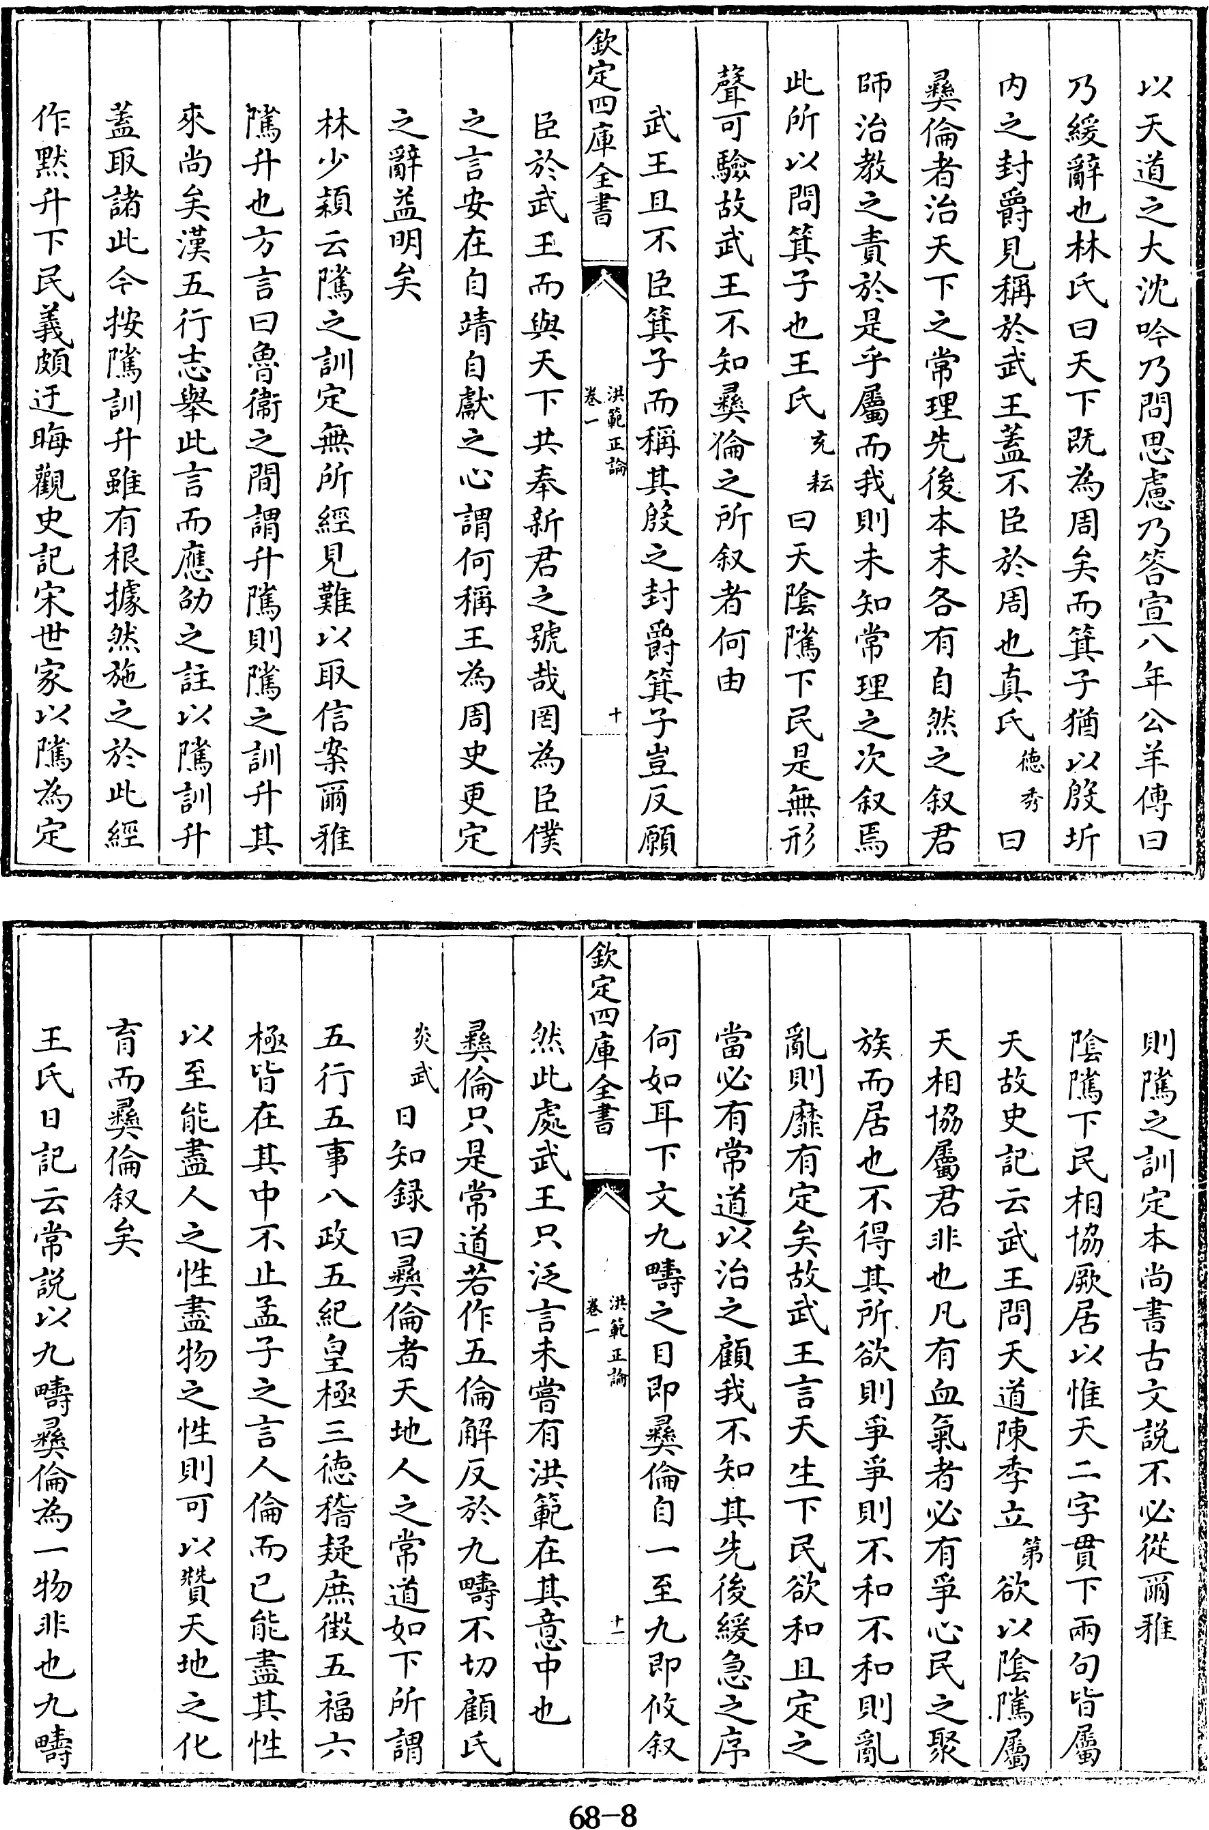 以天道之大沈吟乃問思慮乃答宣八年公羊傳曰
乃緩辭也林氏曰天下既為周矣而箕子猶以殷圻
内之封爵見稱於武王蓋不臣於周也真氏德秀曰
彞倫者治天下之常理先後本末各有自然之叙君
師治教之責於是乎屬而我則未知常理之次叙焉
此所以問箕子也王氏充耘曰天陰隲下民是無形
聲可驗故武王不知彞倫之所叙者何由
武王且不臣箕子而稱其殷之封爵箕子豈反願
欽定四庫全書
洪範正論
卷一
十
臣於武王而與天下共奉新君之號哉罔為臣僕
之言安在自靖自獻之心謂何稱王為周史更定
之辭益明矣
林少穎云隲之訓定無所經見難以取信案爾雅
隲升也方言曰魯衞之間謂升隲則隲之訓升其
來尚矣漢五行志舉此言而應劭之註以隲訓升
蓋取諸此今按隲訓升雖有根據然施之於此經
作默升下民義頗迂晦觀史記宋世家以隲為定
則隲之訓定本尚書古文說不必從爾雅
陰隲下民相協厥居以惟天二字貫下兩句皆屬
天故史記云武王問天道陳季立第欲以陰隲屬
天相協屬君非也凡有血氣者必有爭心民之聚
族而居也不得其所欲則爭爭則不和不和則亂
亂則靡有定矣故武王言天生下民欲和且定之
當必有常道以治之顧我不知其先後緩急之序
何如耳下文九疇之目即彞倫自一至九即攸叙
欽定四庫全書
洪範正論
卷一
十一
然此處武王只泛言未嘗有洪範在其意中也
彞倫只是常道若作五倫解反於九疇不切顧氏
炎武日知録曰彞倫者天地人之常道如下所謂
五行五事八政五紀皇極三德稽疑庶徵五福六
極皆在其中不止孟子之言人倫而已能盡其性
以至能盡人之性盡物之性則可以贊天地之化
育而彞倫叙矣
王氏日記云常說以九疇彞倫為一物非也九疇
68-8